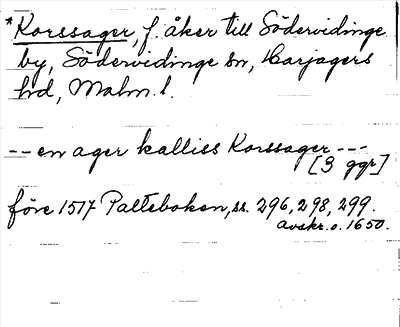 *Korssager, f. åker till Södervidinge
by, Södervidinge sn, Harjagers
hd, Malm. l.
-- en ager kalliss Korssager ---
[3 ggr]
före 1517 Palteboken, ss. 296, 298, 299.
avskr. o. 1650.